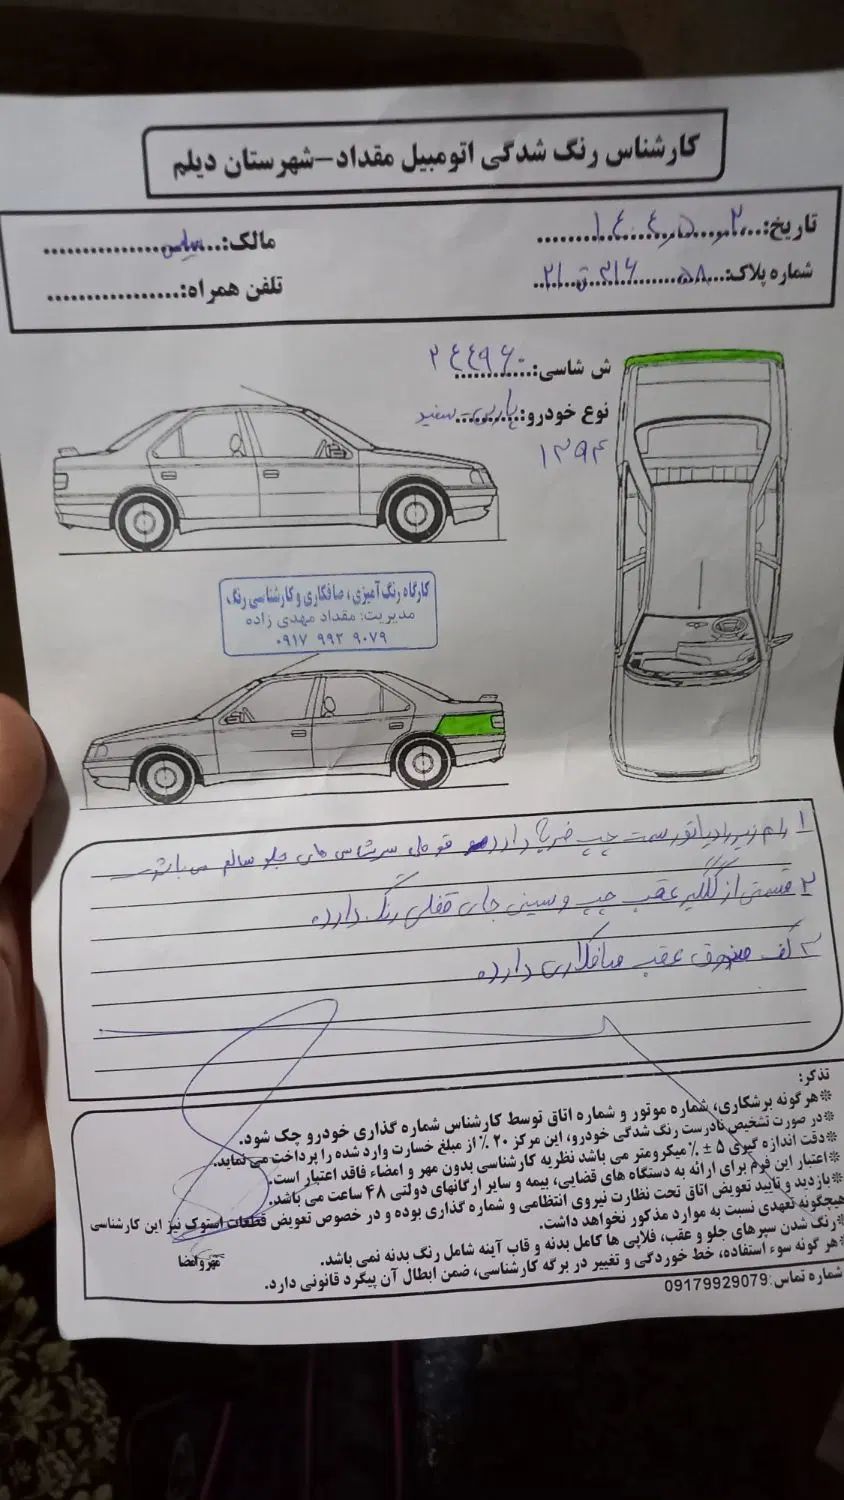 کارشناس رنگ شدگی اتومبیل مقداد-شهرستان دیلم
تاریخ: ۱۴۰۴٫۵٫۲۰
مالک:
شماره پلاک: ۵۸ ۲۱۶ ق ۲۱
تلفن همراه:
ش شاسی: ۲۴۴۹۶۰
نوع خودرو: پارس سفید
۱۳۹۴
کارگاه رنگ آمیزی، صافکاری و کارشناسی رنگ
مدیریت: مقداد مهدی زاده
۰۹۱۷ ۹۹۲ ۹۰۷۹
۱ رام زیر رادیاتور سمت چپ ضربه دارد ولی سرشاسی های جلو سالم می باشد
۲ قسمتی از گلگیر عقب چپ و سینی جای قفلی رنگ دارد
۳ کف صندوق عقب صافکاری دارد
تذکر:
*هرگونه برشکاری، شماره موتور و شماره اتاق توسط کارشناس شماره گذاری خودرو چک شود.
*در صورت تشخیص نادرست رنگ شدگی خودرو، این مرکز ۲۰ ٪ از مبلغ خسارت وارد شده را پرداخت می نماید.
*دقت اندازه گیری ۵ ± ٪میکرومتر می باشد نظریه کارشناسی بدون مهر و امضاء فاقد اعتبار است.
*اعتبار این فرم برای ارائه به دستگاه های قضایی، بیمه و سایر ارگانهای دولتی ۴۸ ساعت می باشد.
*بازدید و تایید تعویض اتاق تحت نظارت نیروی انتظامی و شماره گذاری بوده و در خصوص تعویض قطعات استوک نیز این کارشناسی
هیچگونه تعهدی نسبت به موارد مذکور نخواهد داشت.
*رنگ شدن سپرهای جلو و عقب، فلاپی ها کامل بدنه و قاب آینه شامل رنگ بدنه نمی باشد.
*هر گونه سوء استفاده، خط خوردگی و تغییر در برگه کارشناسی، ضمن ابطال آن پیگرد قانونی دارد.
مهر و امضا
شماره تماس:09179929079